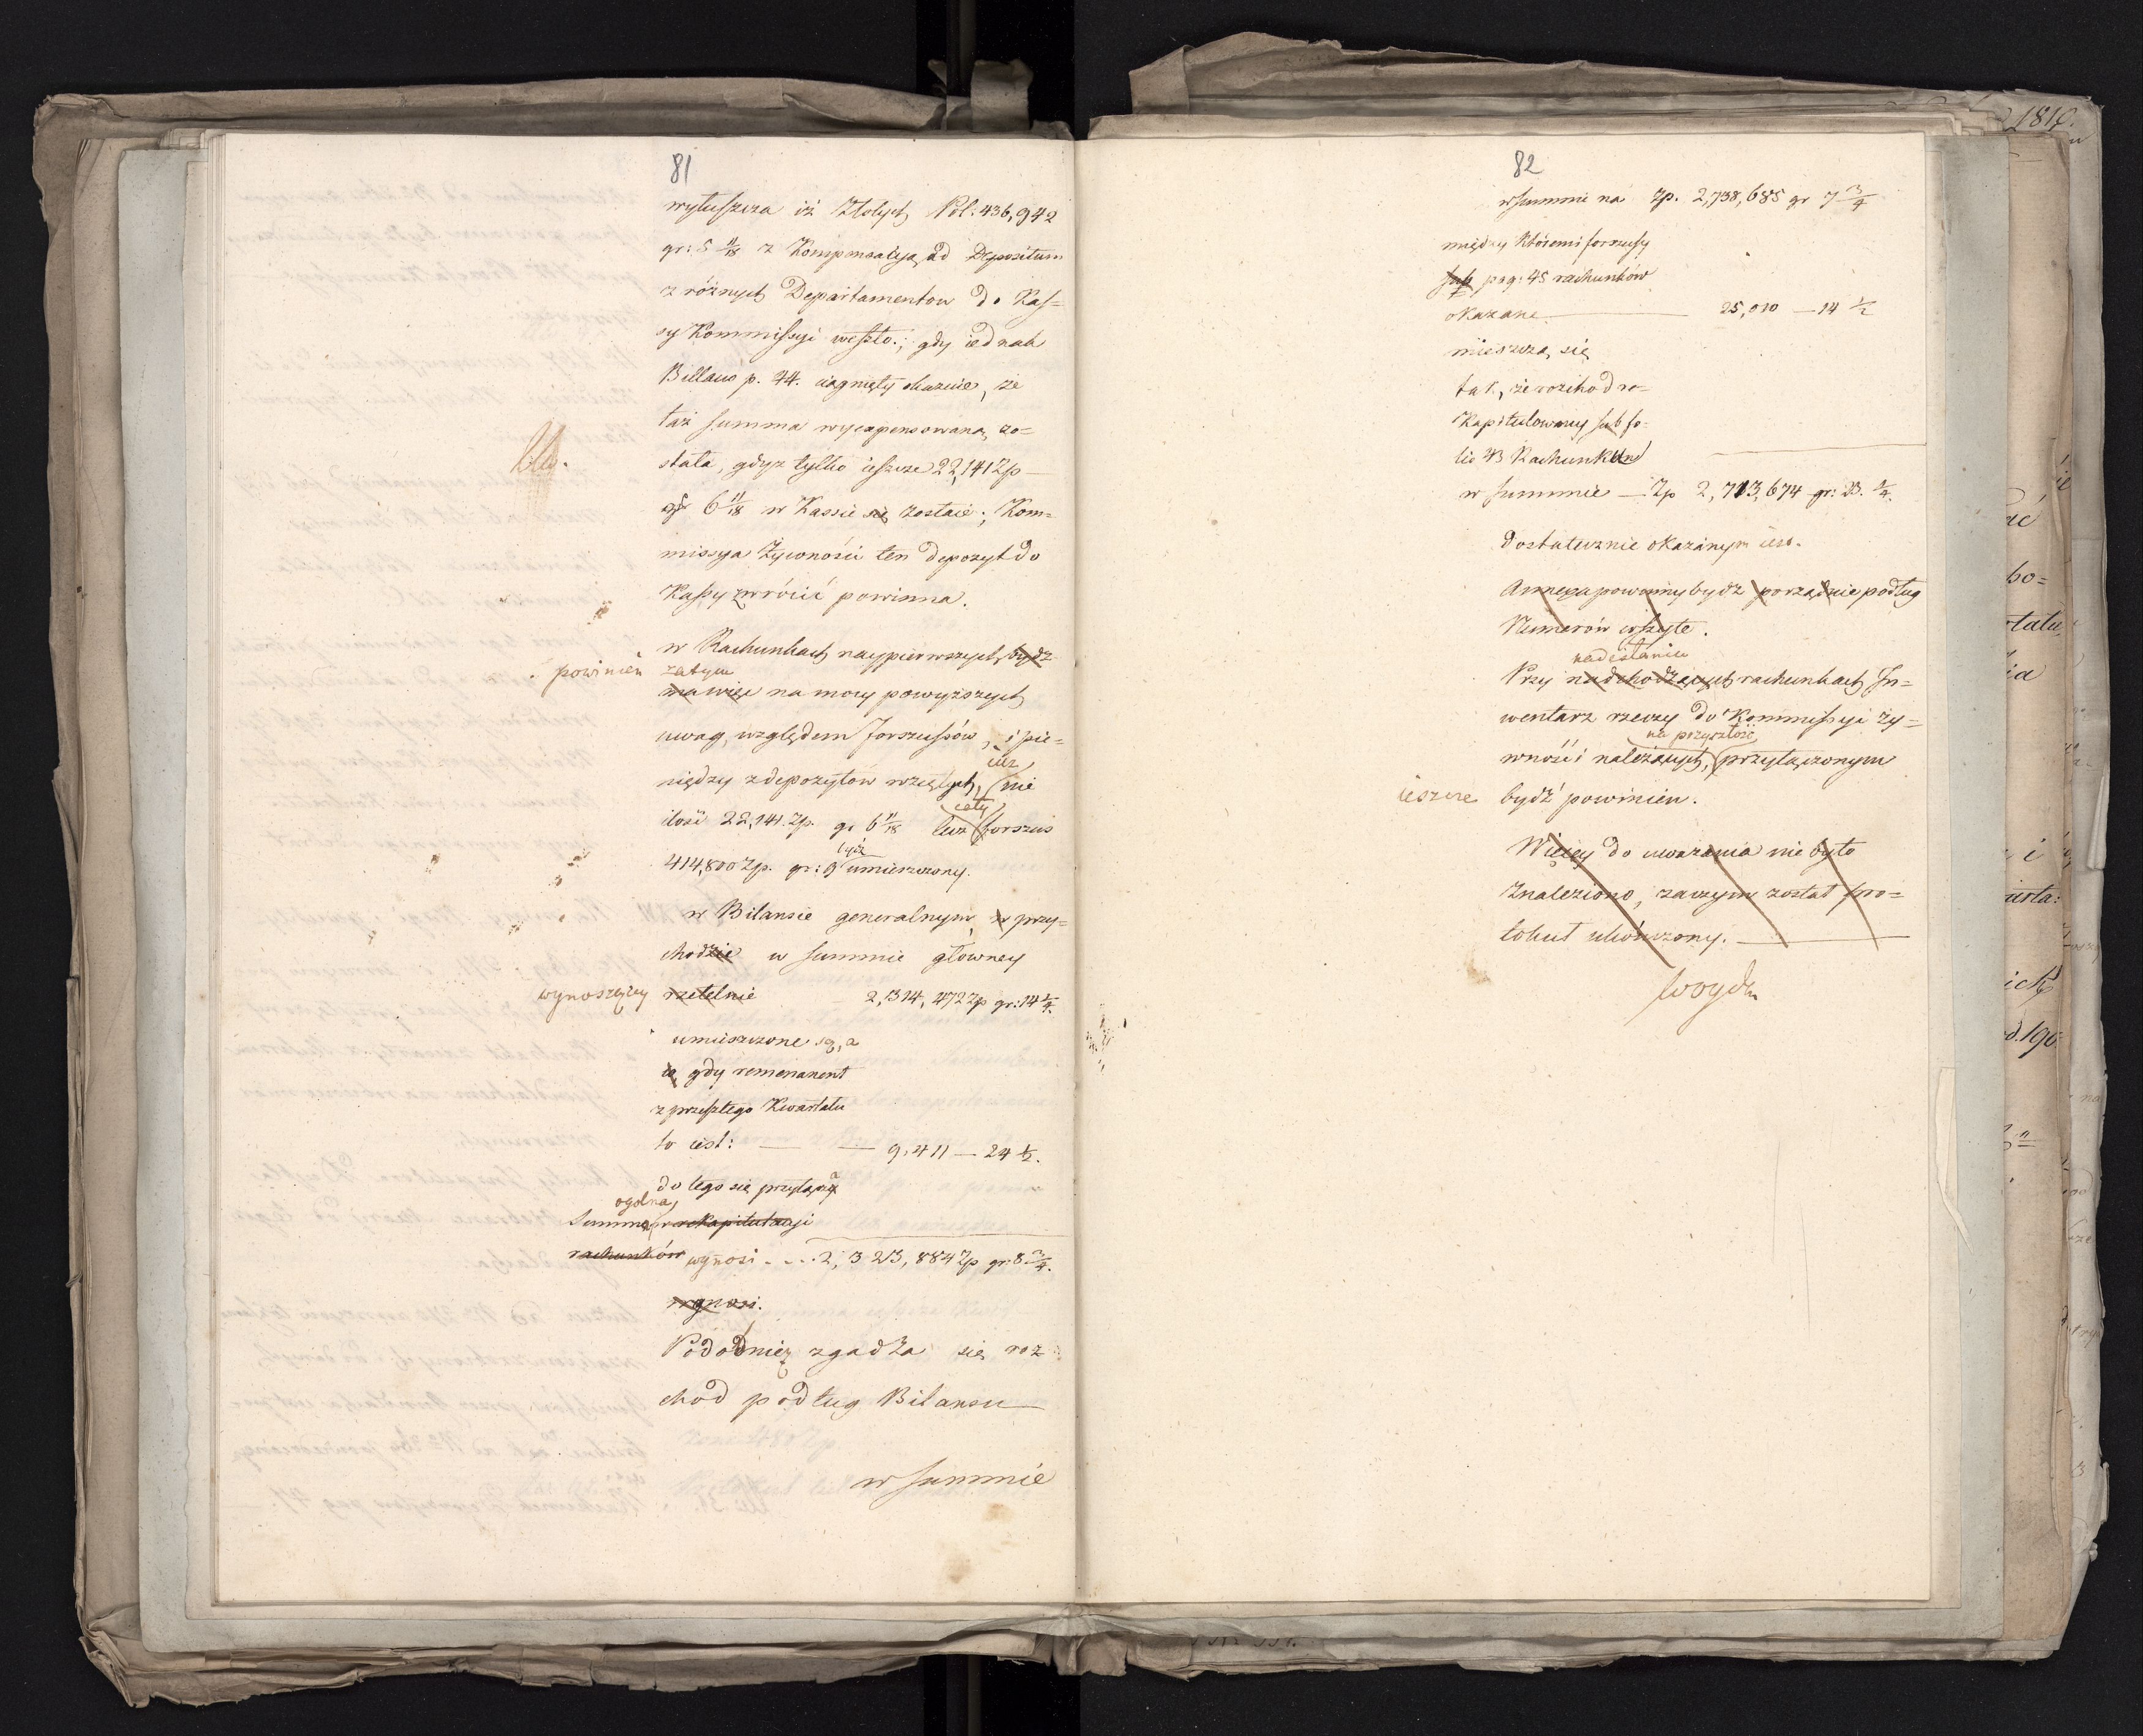 81
wyłuszcza iż Złotych Pol: 436,942
gr: 5 11/18 z Kompensacyą ad Depositum
z różnych Departamentow do Kas=
sy Kommissyi weszło.; gdy iednak
Billans p. 44. ciągnięty okazuie, że
taż summa wyexpensowaną zo=
stała, gdyż tylko ieszcze 22,141 Zp
gr 6 11/18 w Kassie się zostaie; Kom=
missya Żywności ten depozyt do
Kassy zwrócić powinna.
w Rachunkach naypierwszych bydź
powinien zatym
ma więc na mocy powyższych
uwag, względem forszussów, i pie=
niędzy z depozytów wziętych, nie
ilość 22,141. Zp. gr 6 11/18 lecz cały forszus
414,800 Zp. gr: 9 bydź umieszczony.
w Bilansie generalnym w przy=
chodzie w summie głowney
wynoszącey rzetelnie 2,314,472 Zp gr: 14 1/4.
umieszczone są, a
gdy remenanent
z przeszłego Kwartału
to iest: — — 9,411 — 24 1/2.
do tego się przyłączy
ogolna
Summa w rekapitulacyi
rachunków wynosi . - - . 2,323,884 Zp gr: 8 3/4.
wynosi.
Podobnież zgadza się roz
chod podług Bilansu
w Summie
82
w Summie na Zp. 2,738,685 gr 7 3/4
między któremi forszusy
sub pag: 45 rachunków
okazane — 25,010 — 14 1/2
mieszczą się
tak, że rozchod re=
kapitulowany sub fo=
lio 43 Rachunków
w summie — Zp 2,713,674 gr: 23. 1/4.
dostatecznie okazanym iest.
Annexa powinny bydź porządnie podług
Numerów wszyte.
nadesłaniu
Przy nadchodzących rachunkach In=
wentarz rzeczy do Kommissyi Ży=
na przyszłość
wności należących, przyłączonym
ieszcze bydź powinien.
Więcey do uważania nie było
Znaleziono, zaczym został pro=
tokuł ukończony.
Woyda